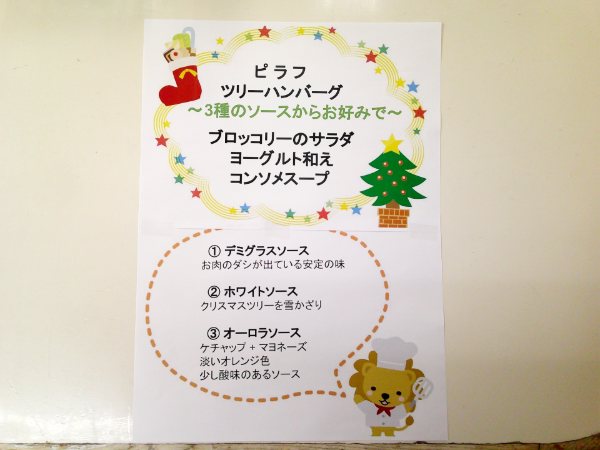 ピラフ
ツリーハンバーグ
～3種のソースからお好みで～
ブロッコリーのサラダ
ヨーグルト和え
コンソメスープ
① デミグラスソース
お肉のダシが出ている安定の味
② ホワイトソース
クリスマスツリーを雪かざり
③ オーロラソース
ケチャップ + マヨネーズ
淡いオレンジ色
少し酸味のあるソース